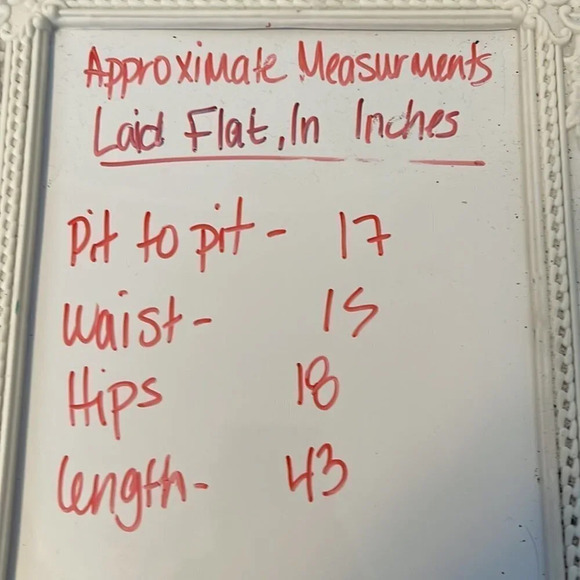 Approximate Measurments
Laid Flat, In Inches
Pit to pit - 17
Waist - 15
Hips 18
length - 43